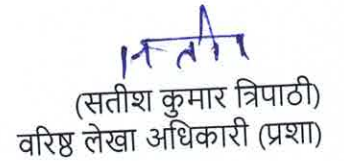 (सतीश कुमार त्रिपाठी)
वरिष्ठ लेखा अधिकारी (प्रशा)